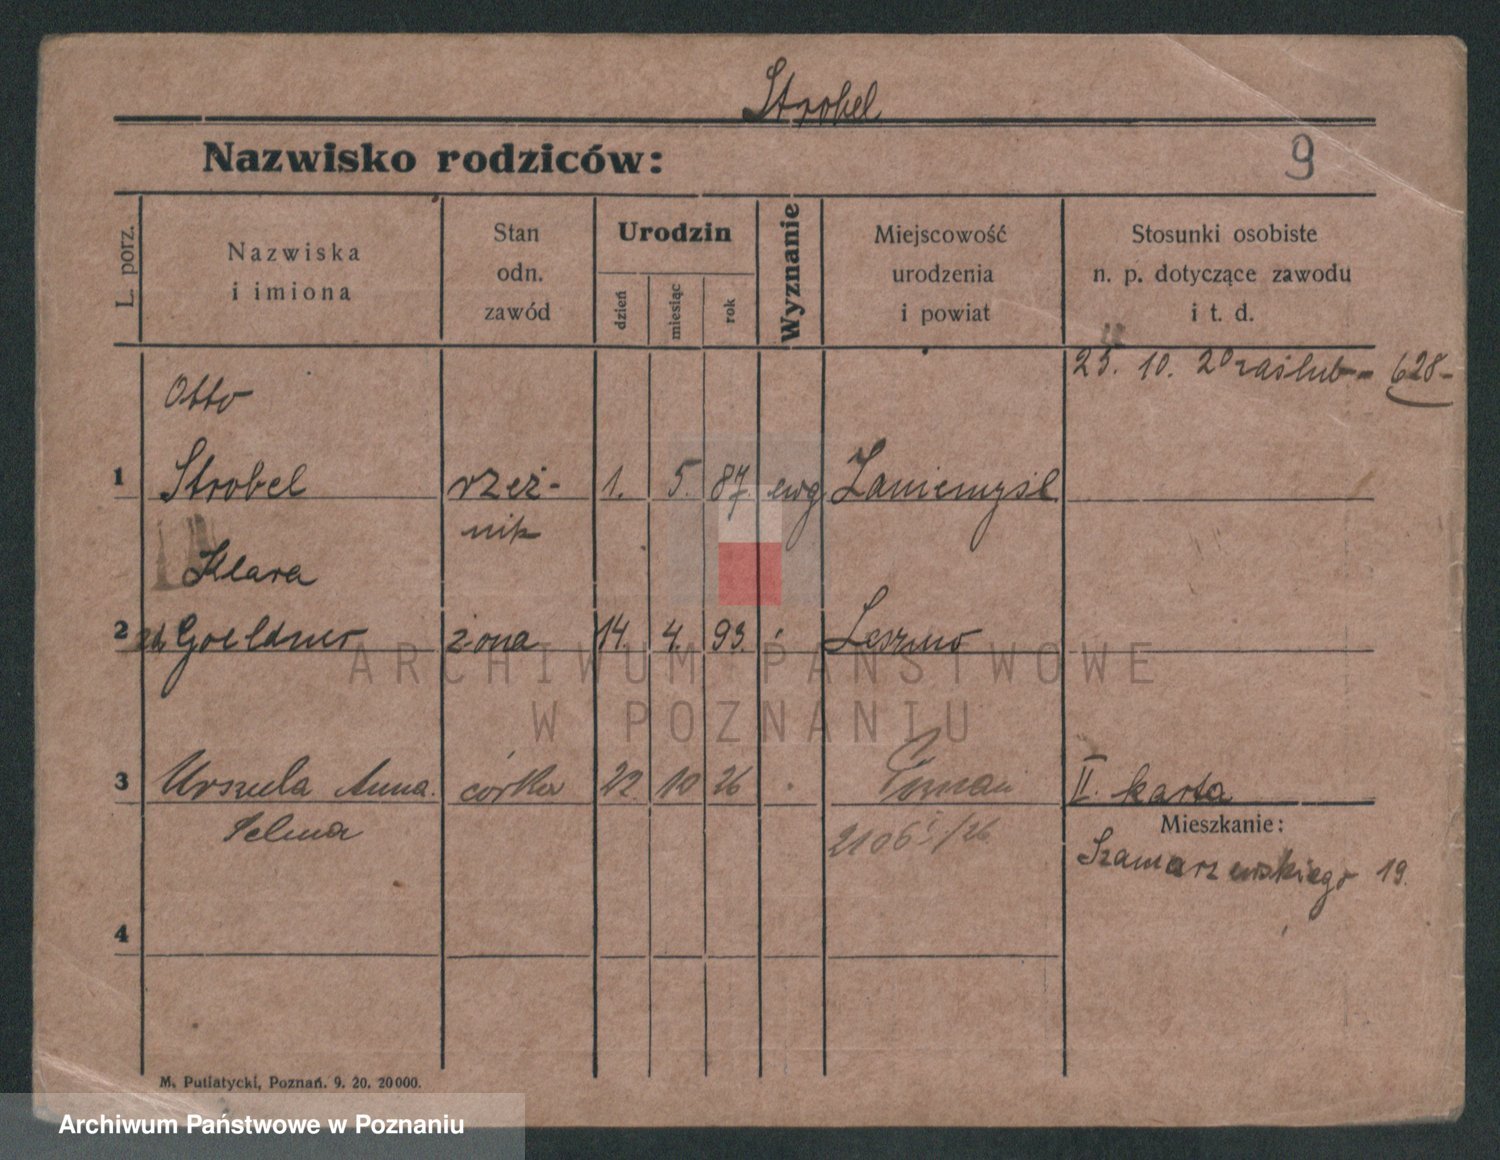 Strobel
Nazwisko rodziców:
9
L. porz.
Nazwiska
i imiona
Stan
odn.
zawód
Urodzin
dzień
miesiąc
rok
Wyznanie
Miejscowość
urodzenia
i powiat
Stosunki osobiste
n. p. dotyczące zawodu
i t. d.
25. 10. 20 zaślub - 628 -
Otto
1 Strobel rzeź- 1. 5. 87. ewg. Zaniemyśl
nik
Klara
2 Goeldner żona 14. 4. 93. Leszno
3 Urszula Anna córka 22 10 26 Poznań II. karta
Selma 2106/26
Mieszkanie:
Szamarzewskiego 19.
4
M. Putiatycki, Poznań. 9. 20. 20000.
ARCHIWUM PAŃSTWOWE
W POZNANIU
Archiwum Państwowe w Poznaniu